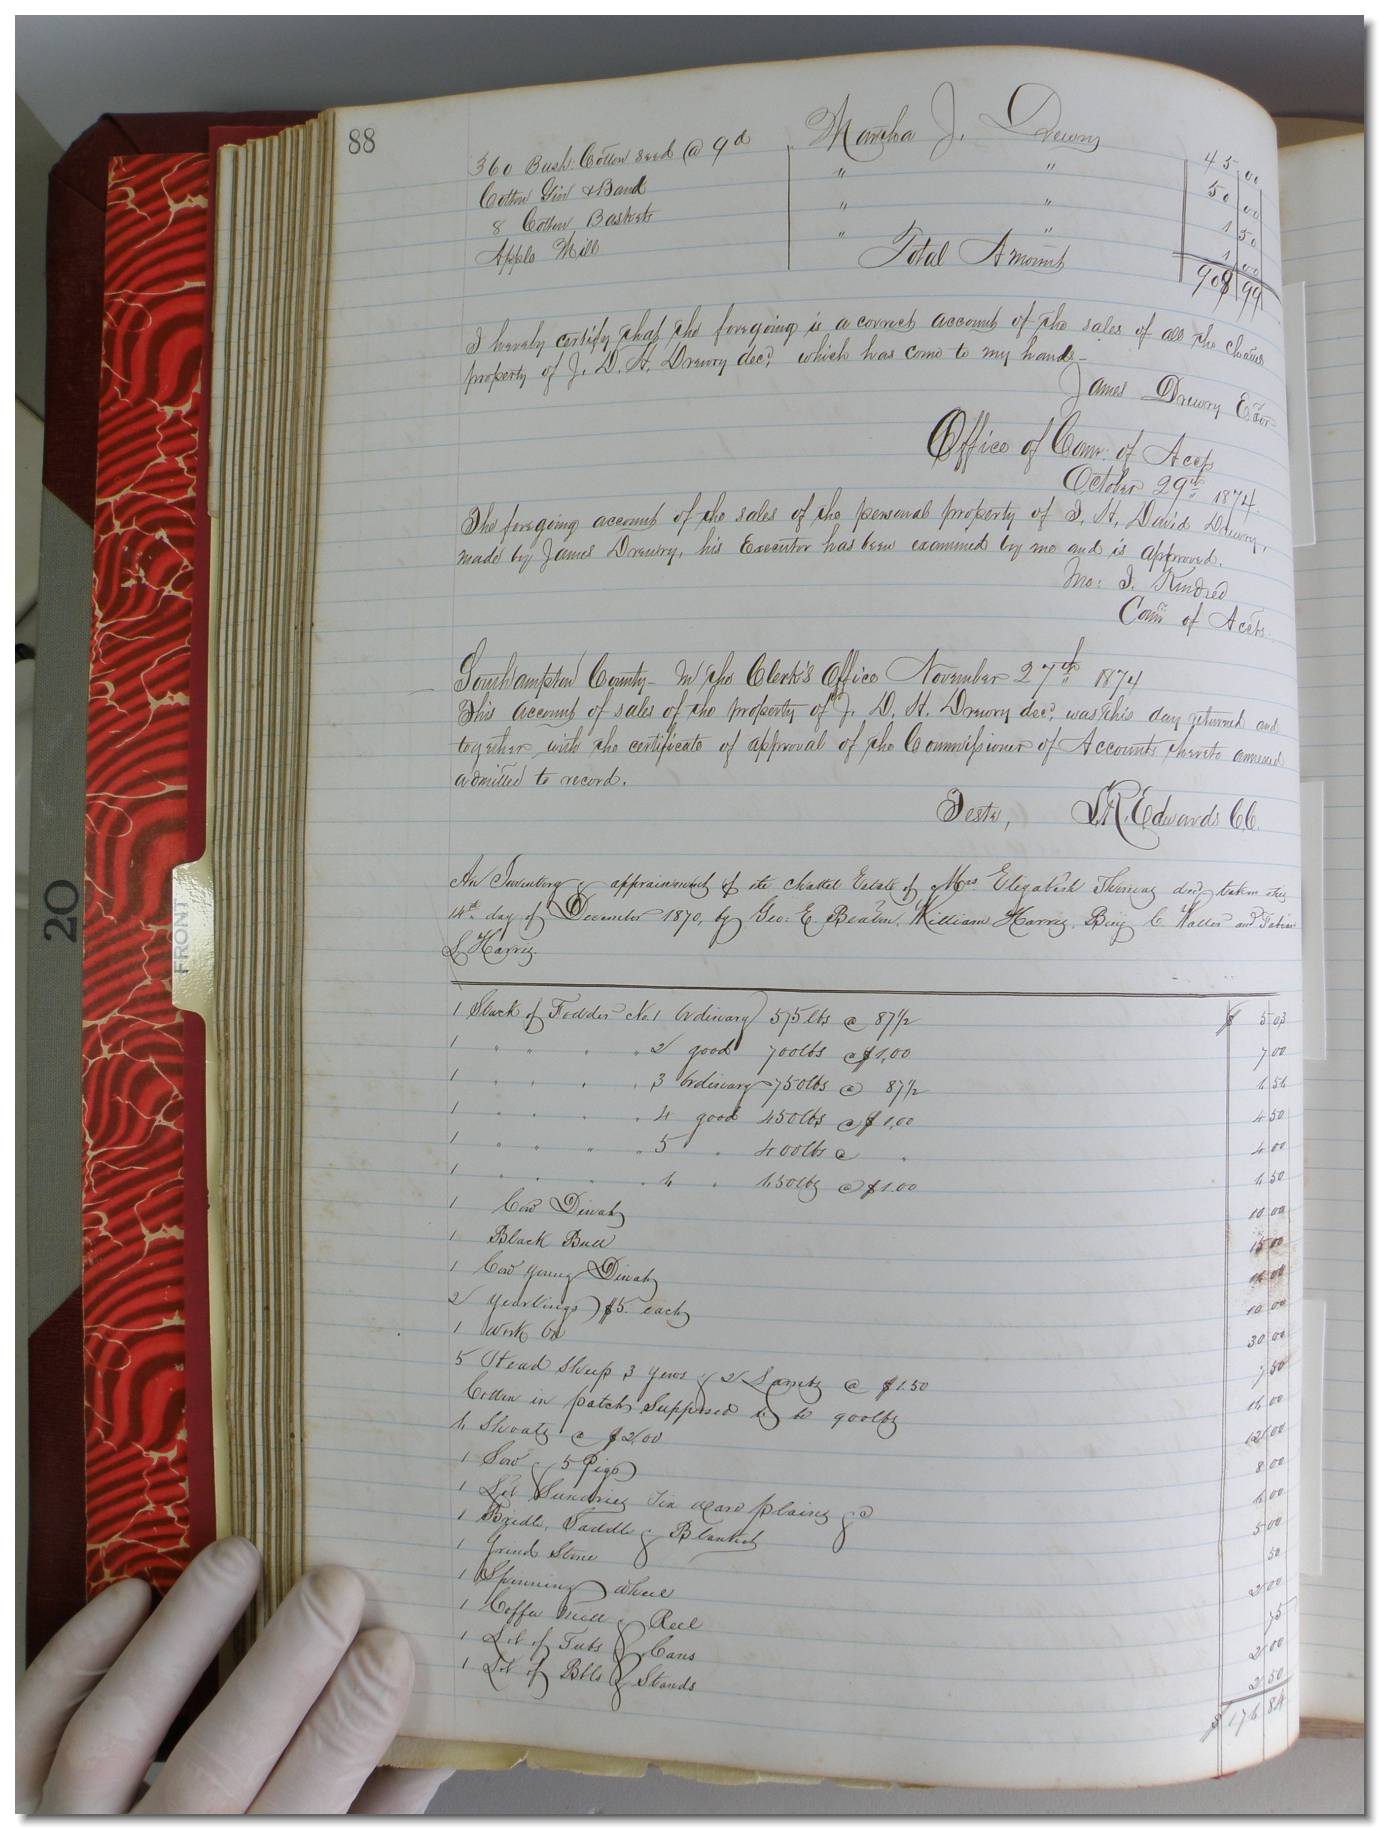 88
Martha J. Drewry
360 Bush. Cotton seed @ 9d 45 00
Cotton Gin & Band " " 50 00
8 Cotton Baskets " " 1 50
Apple Mill " " 1 00
Total Amount 908 99
I hereby certify that the foregoing is a correct account of the sales of all the
property of J. D. H. Drewry decd. which has come to my hands-
James Drewry Exor
Office of Comr. of Accts
October 29th 1874
The foregoing account of the sales of the personal property of J. H. David Drewry,
made by James Drewry, his Executor has been examined by me and is approved.
Jno: J. Kindred
Comr of Accts.
Southampton County- In the Clerk's Office November 27th 1874
This account of sales of the property of J. D. H. Drewry decd. was this day returned and
together with the certificate of approval of the Commissioner of Accounts thereto annexed
admitted to record.
Teste, L.R. Edwards C.C.
An Inventory & appraisement of the chattel Estate of Mrs Elizabeth decd taken this
14th day of December 1870, by Geo: E. Beaton, William Harris, Benj C Waller and
L Harris.
1 Stack of Fodder No. 1 Ordinary 575 lbs @ 87½ $ 5 03
1 " " " " 2 good 700 lbs @ $1,00 7 00
1 " " " " 3 Ordinary 750 lbs @ 87½ 6 56
1 " " " " 4 good 450 lbs @ $1,00 4 50
1 " " " " 5 " 400 lbs @ " 4 00
1 " " " " 6 " 650 lbs @ $1.00 6 50
1 Cow Dinah 10 00
1 Black Bull 15 00
1 Cow young Dinah 00
2 yearlings $5. each 10 00
1 Work Ox 30 00
5 Head Sheep 3 yews & 2 Lambs @ $1.50 7 50
Cotton in patch Supposed to be 900 lbs 00
6 Shoats @ $2.00 12 00
1 Sow & 5 Pigs 8 00
1 Lot Sundries Tin ware plains &c 6 00
1 Bridle, Saddle & Blanket 5 00
1 Grind Stone 50
1 Spinning Wheel 2 00
1 Coffee Mill & Reel 75
1 Lot of Tubs & Cans 2 00
1 Lot of Bbls & Stands 2 50
$ 176 84
FRONT
20